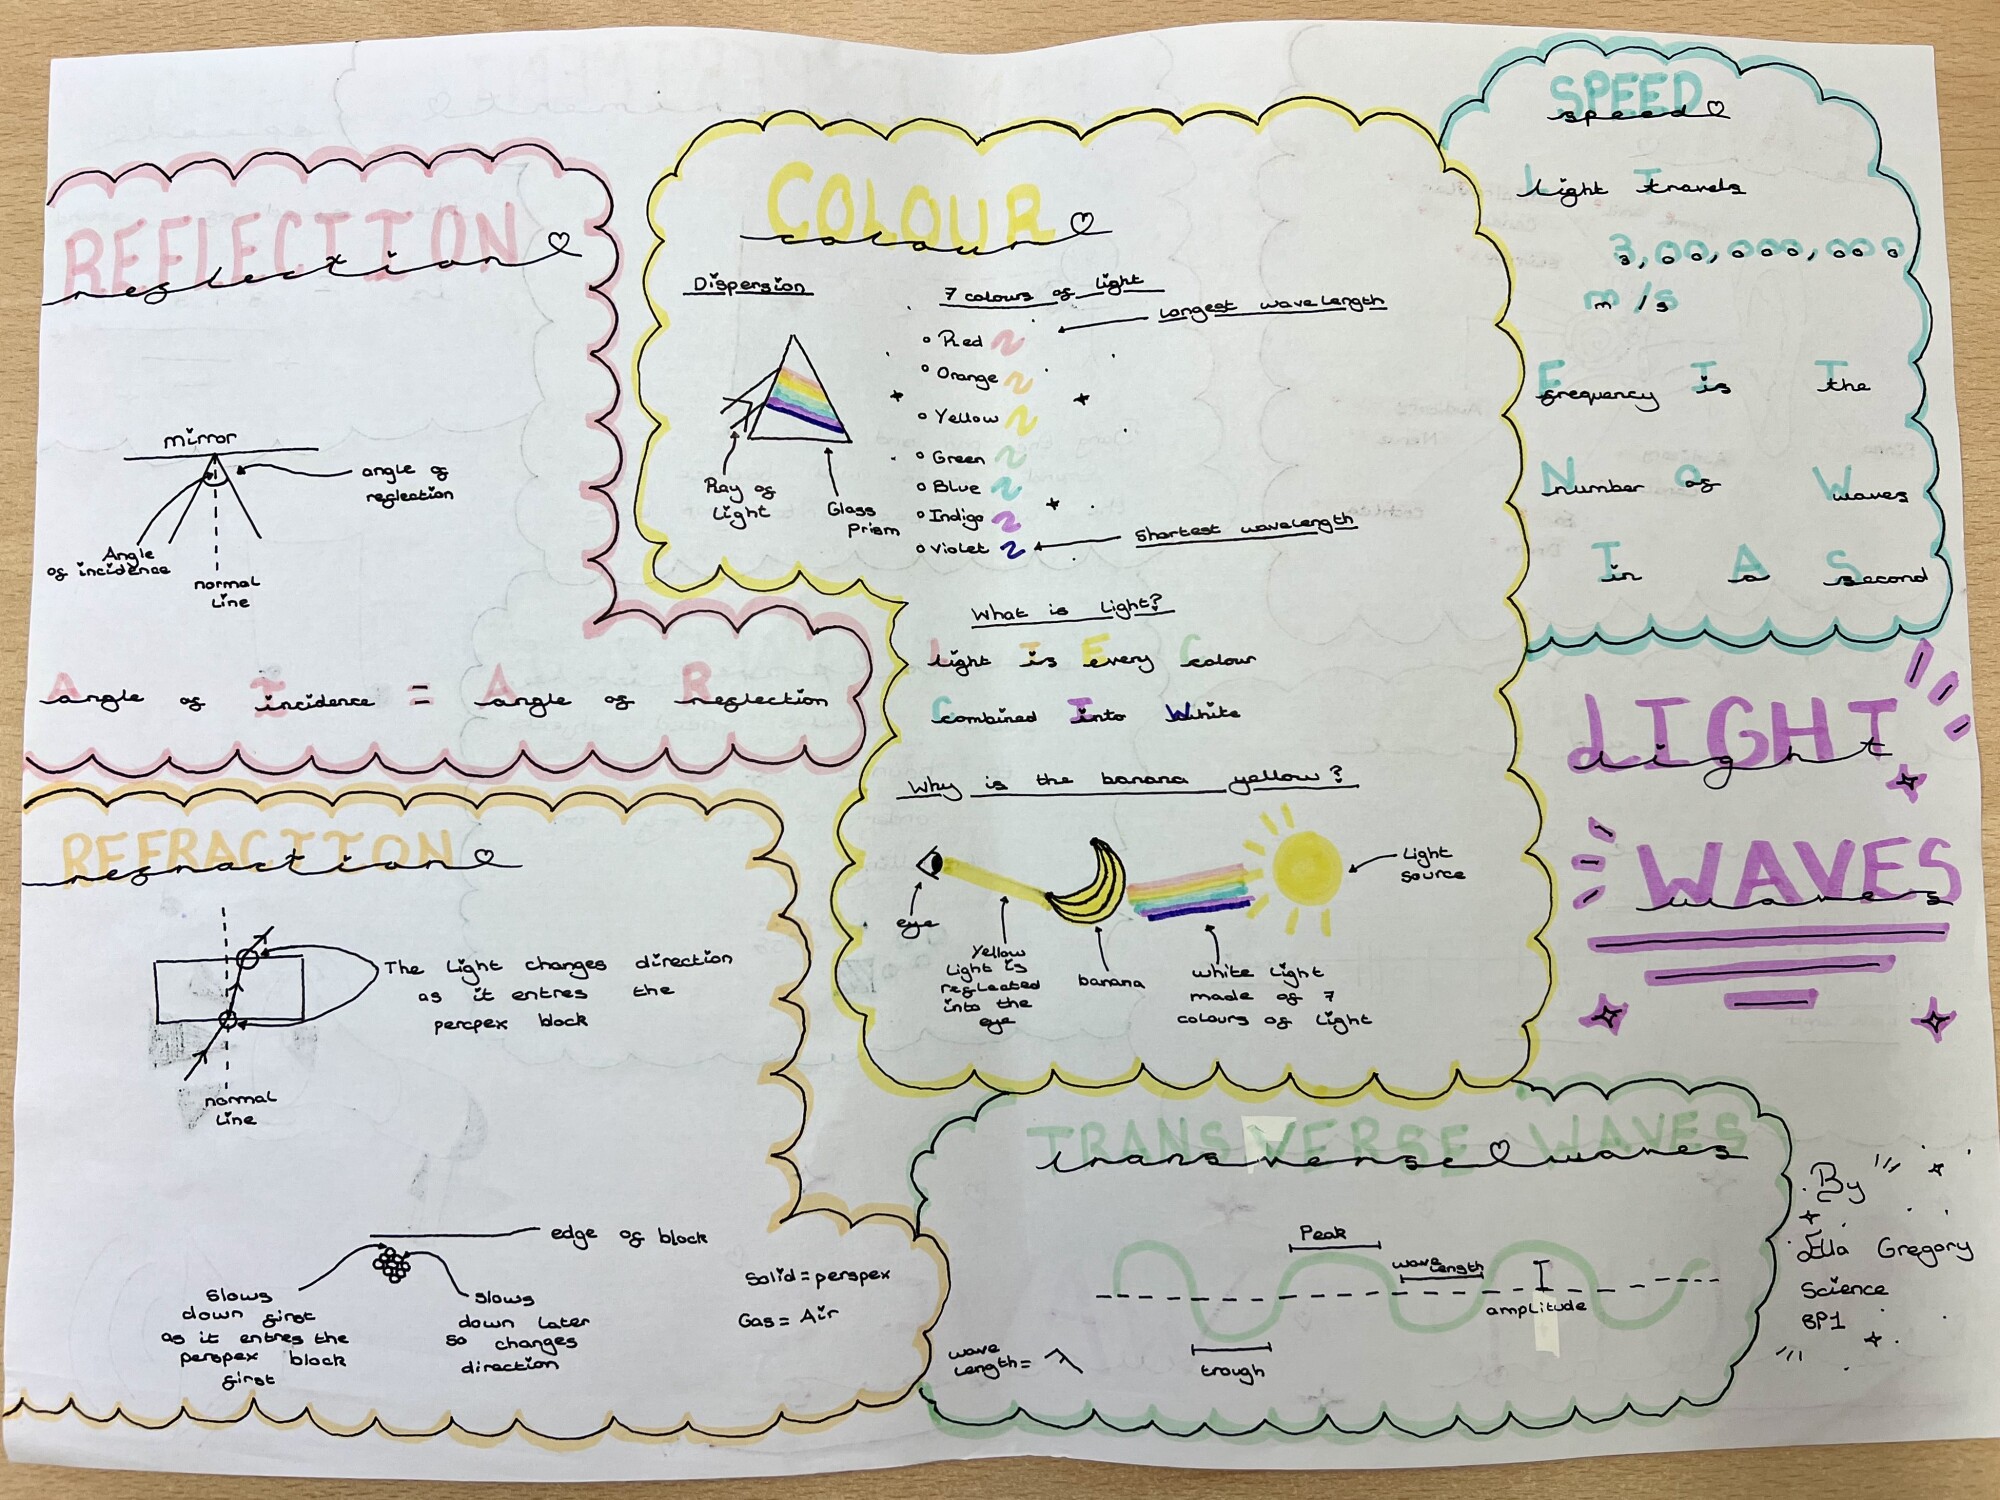 REFLECTION
reflection
mirror
angle of
reflection
Angle
of incidence
normal
Line
angle of incidence = angle of reflection
REFRACTION
refraction
The Light changes direction
as it entres the
percpex block
normal
Line
edge of block
Slows
down first
as it entres the
perspex block
first
slows
down later
so changes
direction
Solid = perspex
Gas = Air
COLOUR
colour
Dispersion
Ray of
Light
Glass
prism
7 colours of light
Longest wavelength
Red
Orange
Yellow
Green
Blue
Indigo
Violet
Shortest wavelength
What is Light?
Light is Every Colour
Combined Into White
Why is the banana yellow?
eye
Yellow
Light is
reflected
into the
eye
banana
white light
made of 7
colours of light
Light
source
SPEED
speed
Light Travels
3,00,000,000
m/s
Frequency Is The
Number of Waves
In a Second
LIGHT
light
WAVES
waves
TRANSVERSE WAVES
transverse waves
Peak
wave
length
amplitude
trough
wave
Length = λ
By
Ella Gregory
Science
8P1